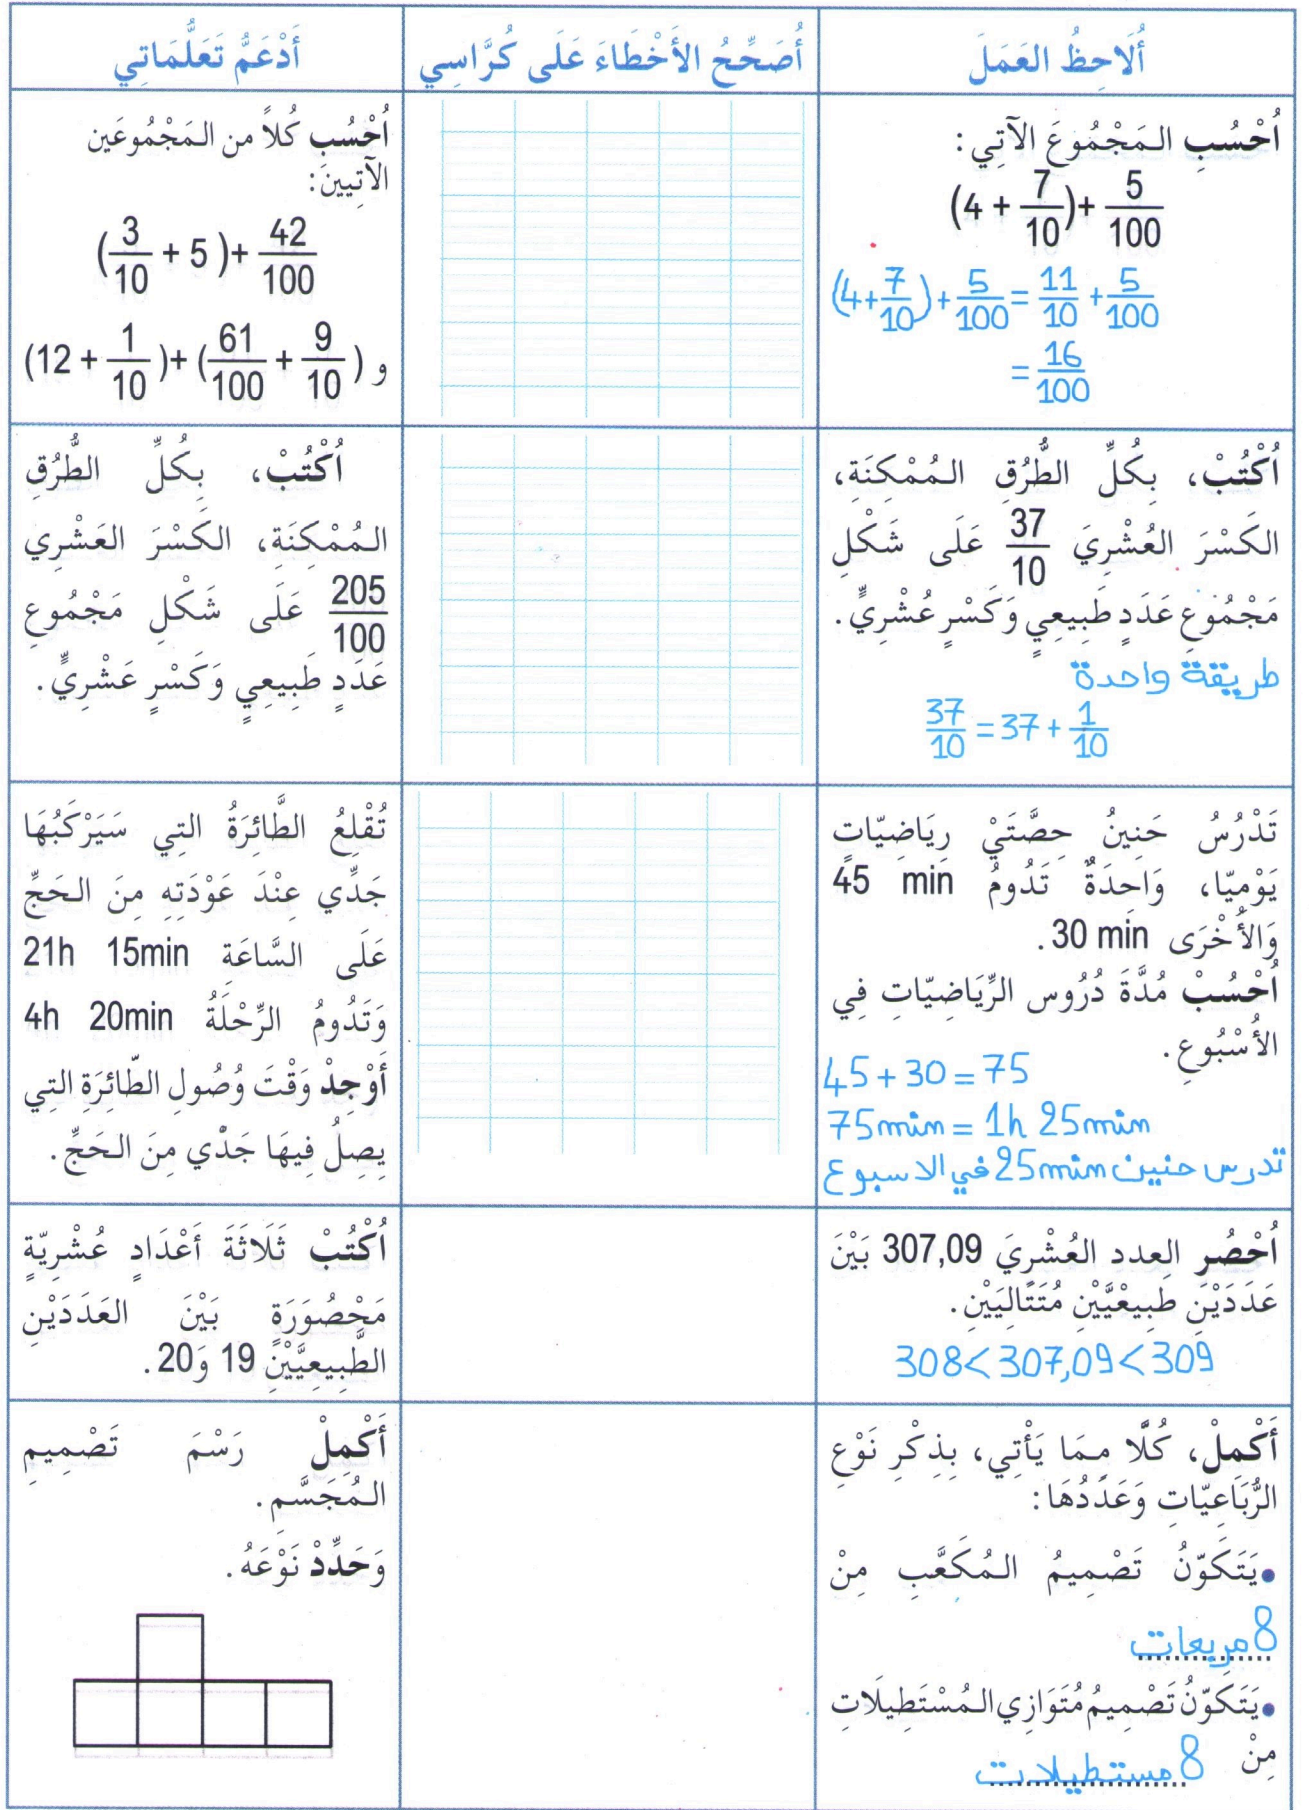 أُلَاحِظُ العَمَلَ
أُصَحِّحُ الأَخْطَاءَ عَلَى كُرَّاسِي
أَدْعَمُّ تَعَلُّمَاتِي
اُحْسُبِ المَجْمُوعَ الآتِي :
(4 + 7/10) + 5/100
(4+7/10)+5/100 = 11/10 + 5/100
= 16/100
اُحْسُبِ كُلاً من المَجْمُوعَين
الآتِيينَ:
(3/10 + 5 )+ 42/100
و (12 + 1/10 )+ (61/100 + 9/10 )
اُكْتُبْ، بِكُلِّ الطُّرُقِ المُمْكِنَةِ،
الكَسْرَ العُشْرِيَ 37/10 عَلَى شَكْلِ
مَجْمُوعِ عَدَدٍ طَبِيعِيٍ وَكَسْرٍ عُشْرِيٍّ.
طريقة واحدة
37/10 = 37 + 1/10
اُكْتُبْ، بِكُلِّ الطُّرُقِ
المُمْكِنَةِ، الكَسْرَ العَشْرِي
205/100 عَلَى شَكْلِ مَجْمُوعِ
عَدَدٍ طَبِيعِيٍ وَكَسْرٍ عَشْرِيٍّ.
تَدْرُسُ حَنِينُ حِصَّتَيْ رِيَاضِيّاتٍ
يَوْمِيّا، وَاحِدَةٌ تَدُومُ 45 min
وَالأُخْرَى 30 min .
اُحْسُبْ مُدَّةَ دُرُوس الرِّيَاضِيّاتِ فِي
الأُسْبُوعِ.
45 + 30 = 75
75min = 1h 25min
تدرس حنين 25min في الاسبوع
تُقْلِعُ الطَّائِرَةُ التِي سَيَرْكَبُهَا
جَدِّي عِنْدَ عَوْدَتِهِ مِنَ الحَجِّ
عَلَى السَّاعَةِ 21h 15min
وَتَدُومُ الرِّحْلَةُ 4h 20min
أَوْجِدْ وَقْتَ وُصُولِ الطّائِرَةِ التِي
يِصِلُ فِيهَا جَدِّي مِنَ الحَجِّ.
اُحْصُرِ العدد العُشْرِيَ 307,09 بَيْنَ
عَدَدَيْنِ طَبِيعْيَّيْنِ مُتَتَالِيَيْنِ.
308<307,09<309
اُكْتُبْ ثَلَاثَةَ أَعْدَادٍ عُشْرِيّةٍ
مَحْصُورَةٍ بَيْنَ العَدَدَيْنِ
الطَّبِيعِيَّيْنِ 19 وَ20.
أَكْمِلْ، كُلًّا مِمَا يَأْتِي، بِذِكْرِ نَوْعِ
الرُّبَاعِيّاتِ وَعَدَدُهَا:
•يَتَكَوّنُ تَصْمِيمُ المُكَعَّبِ مِنْ
8 مربعات
•يَتَكَوّنُ تَصْمِيمُ مُتَوَازِي المُسْتَطِيلَاتِ
مِنْ 8 مستطيلات
أَكْمِلْ رَسْمَ تَصْمِيمِ
المُجَسَّمِ.
وَحَدِّدْ نَوْعَهُ.